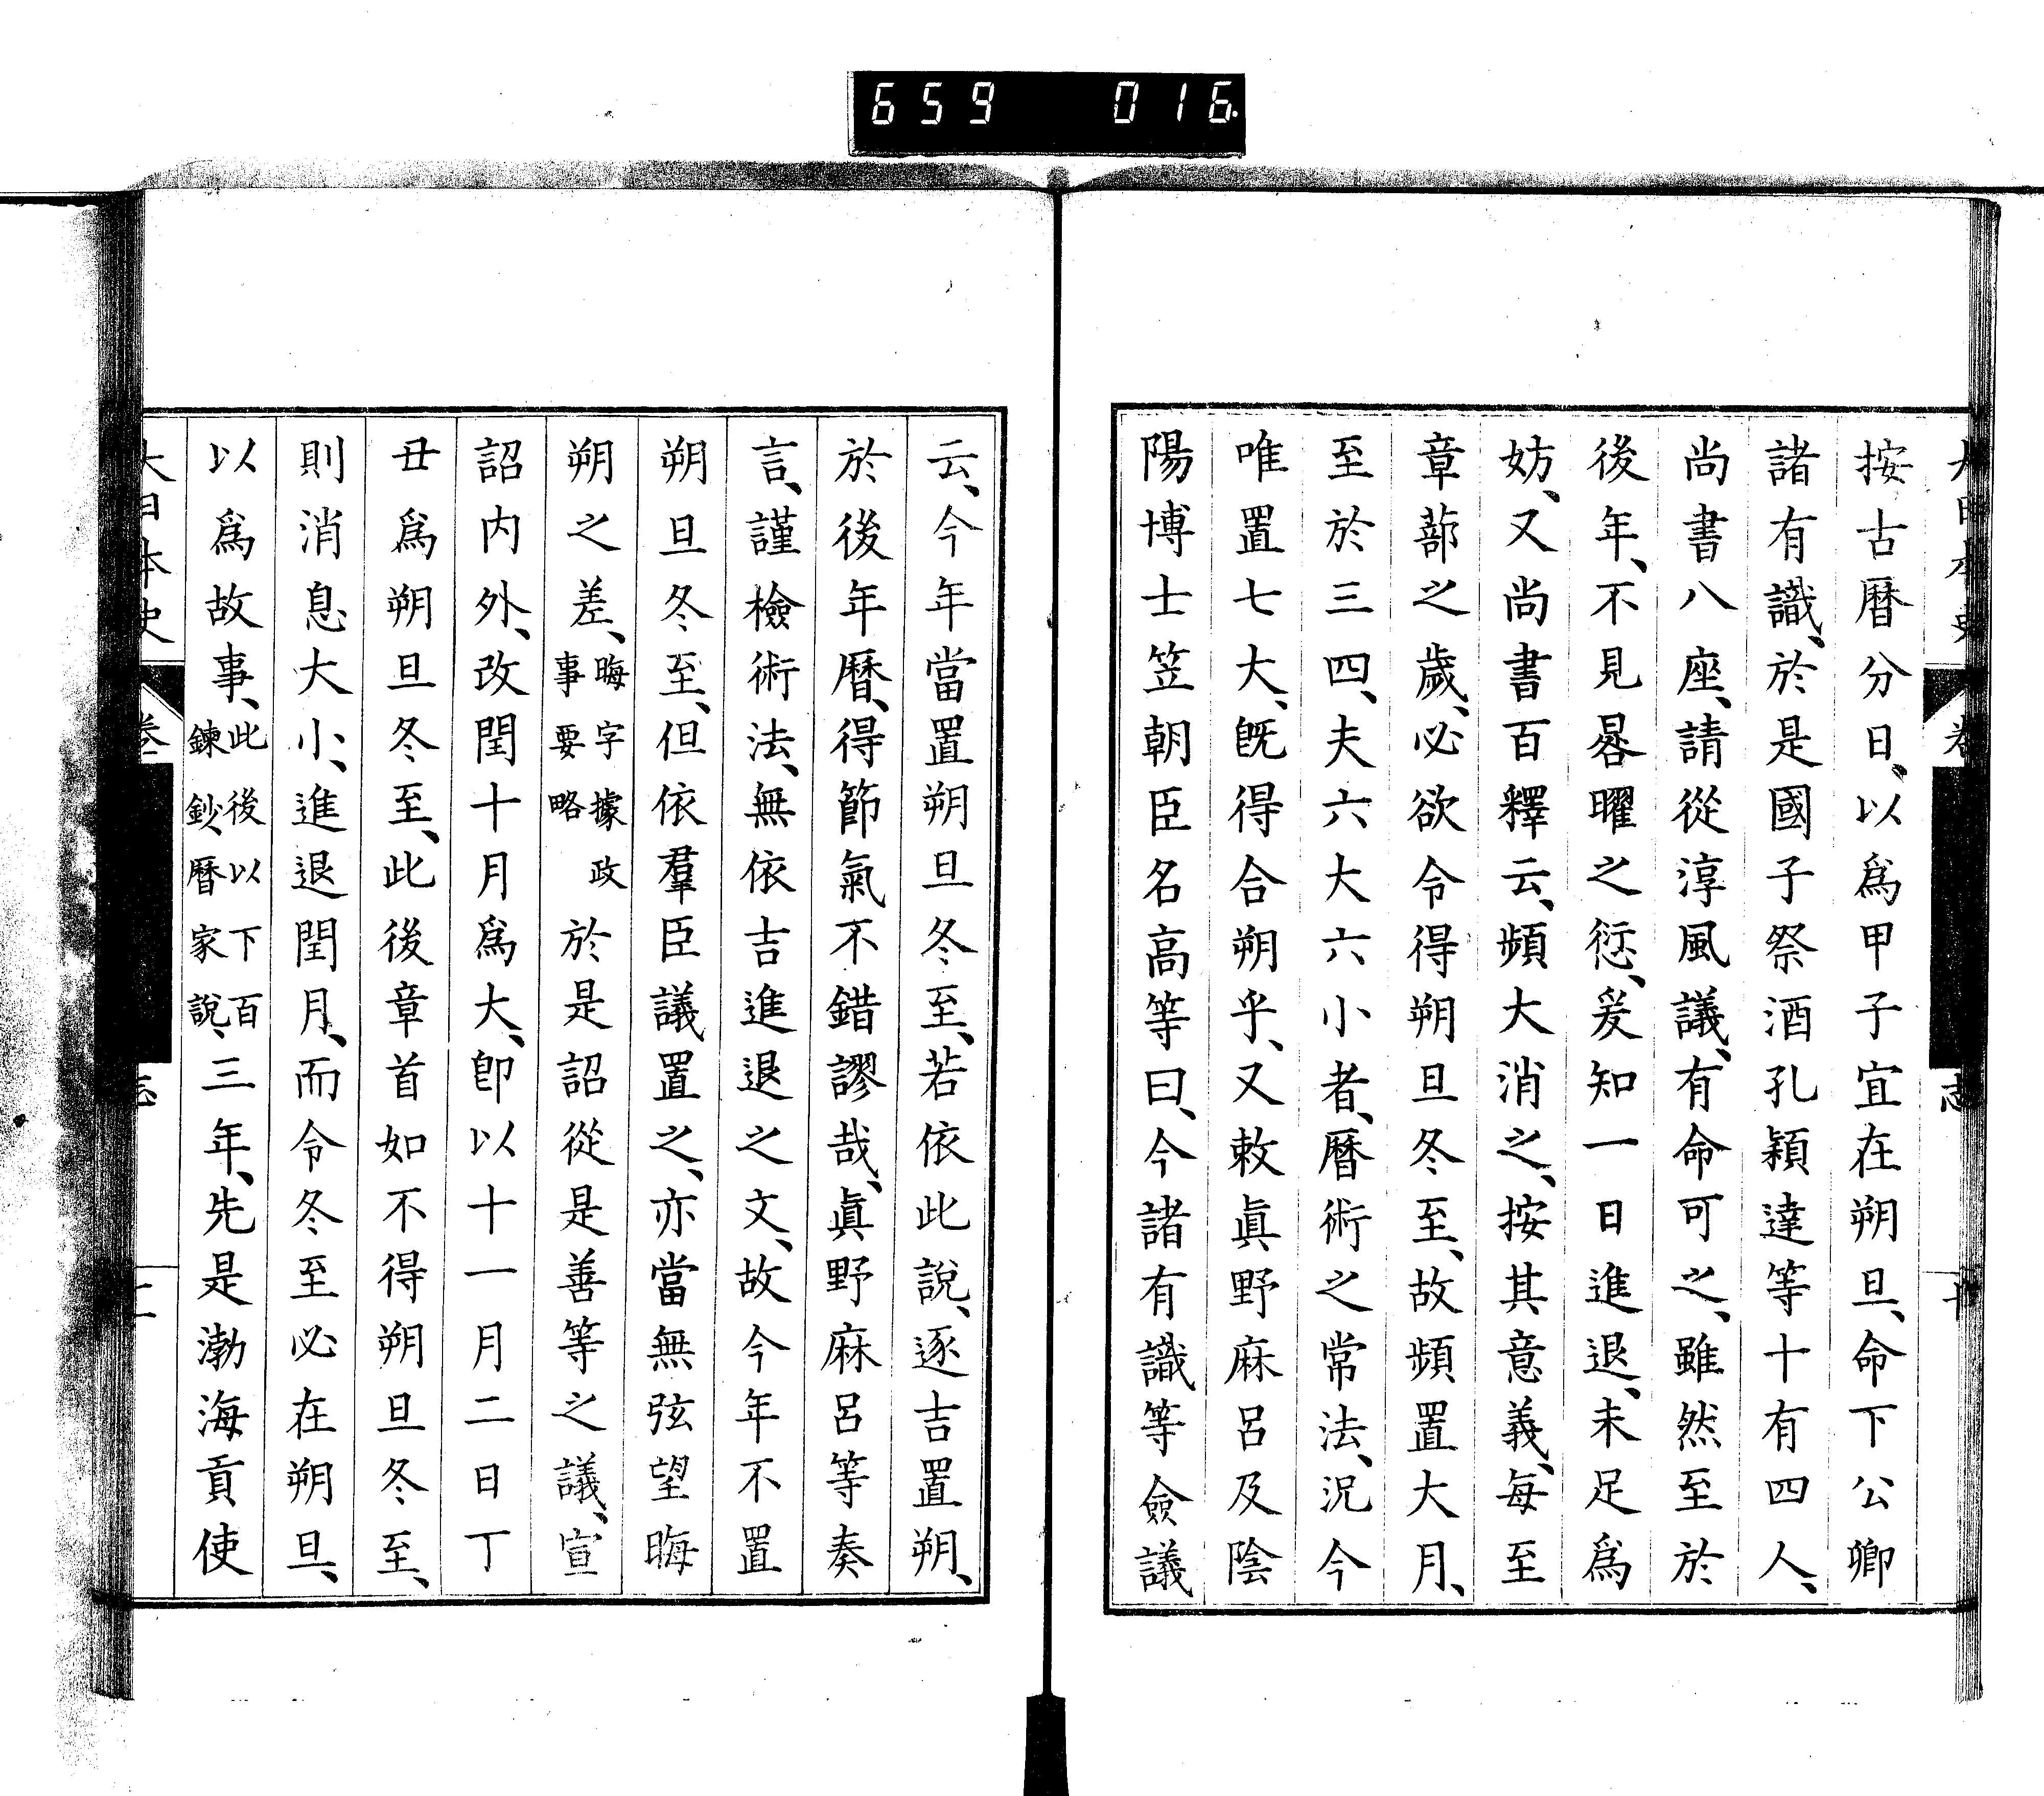 659 016
按古曆分日、以爲甲子宜在朔旦、命下公卿
諸有識、於是國子祭酒孔穎達等十有四人、
尚書八座、請從淳風議、有命可之、雖然至於
後年、不見晷曜之愆、爰知一日進退、未足爲
妨、又尚書百釋云、頻大消之、按其意義、每至
章蔀之歲、必欲令得朔旦冬至、故頻置大月、
至於三四、夫六大六小者、曆術之常法、況今
唯置七大、既得合朔乎、又敕眞野麻呂及陰
陽博士笠朝臣名高等曰、今諸有識等僉議
云、今年當置朔旦冬至、若依此說、逐吉置朔、
於後年曆、得節氣不錯謬哉、眞野麻呂等奏
言、謹檢術法、無依吉進退之文、故今年不置
朔旦冬至、但依羣臣議置之、亦當無弦望晦
朔之差、晦字據政事要略於是詔從是善等之議、宣
詔内外、改閏十月爲大、卽以十一月二日丁
丑爲朔旦冬至、此後章首如不得朔旦冬至、
則消息大小、進退閏月、而令冬至必在朔旦、
以爲故事、此後以下百鍊鈔、曆家說、三年、先是渤海貢使
大日本史 卷 志